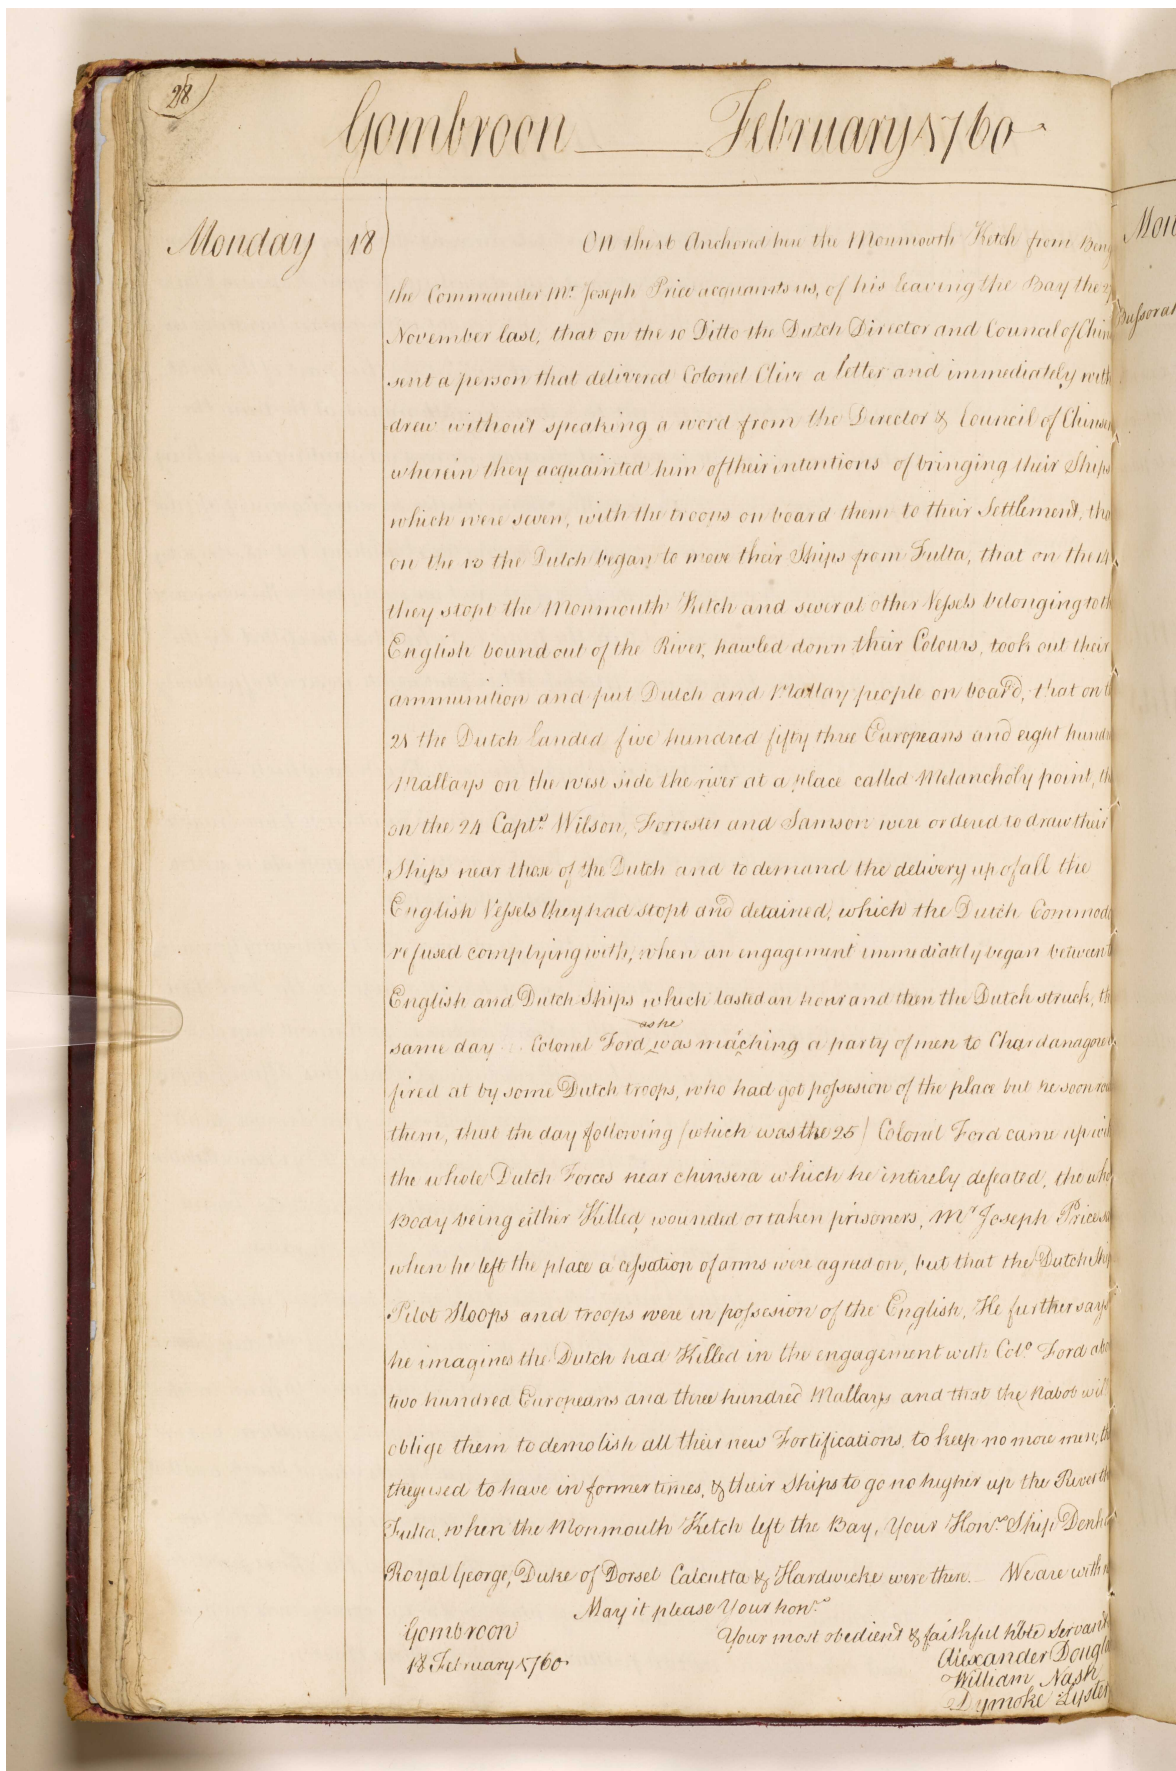 28
Gombroon February 1760
Monday 18 On the 1st Anchored here the Monmouth Ketch from
Mon
the Commander Mr. Joseph Price acquaints us, of his leaving the Bay the
Bussorah
November last, that on the 10 Ditto the Dutch Director and Council of
sent a person that delivered Colonel Clive a letter and immediately with
drew without speaking a word from the Director & Council of
wherein they acquainted him of their intentions of bringing their Ships
which were seven, with the troops on board them to their Settlement,
on the 10 the Dutch began to move their Ships from Fulta, that on the 14
they stopt the Monmouth Ketch and several other Vessels belonging to
English bound out of the River, hawled down their Colours, took out their
ammunition and put Dutch and Mallay people on board, that on
21 the Dutch Landed five hundred fifty three Europeans and eight
Mallays on the west side the river at a place called Melancholy point,
on the 24 Capts. Wilson, Forrester and Samson were ordered to draw their
Ships near those of the Dutch and to demand the delivery up of all the
English Vessels they had stopt and detained, which the Dutch
refused complying with, when an engagement immediately began
English and Dutch Ships which lasted an hour and then the Dutch struck,
as he
same day Colonel Ford was maching a party of men to
fired at by some Dutch troops, who had got possesion of the place but he soon
them, that the day following (which was the 25) Colonel Ford came up
the whole Dutch Forces near chinsera which he intirely defeated, the
Body being either Killed, wounded or taken prisoners, Mr Joseph Price
when he left the place a cessation of arms were agreed on, but that the Dutch
Pilot Sloops and troops were in possesion of the English, He further says
he imagines the Dutch had Killed in the engagement with Colo. Ford
two hundred Europeans and three hundred Mallays and that the Nabob
oblige them to demolish all their new Fortifications, to keep no more men,
they used to have in former times, & their Ships to go no higher up the River
Fulta, when the Monmouth Ketch left the Bay, Your Honrs. Ship
Royal George, Duke of Dorset Calcutta & Hardwicke were there. We are
May it please Your honrs.
Gombroon Your most obedient & faithful hble Servants
18 February 1760. Alexander Dougla
William Nash
Dymoke Lyster